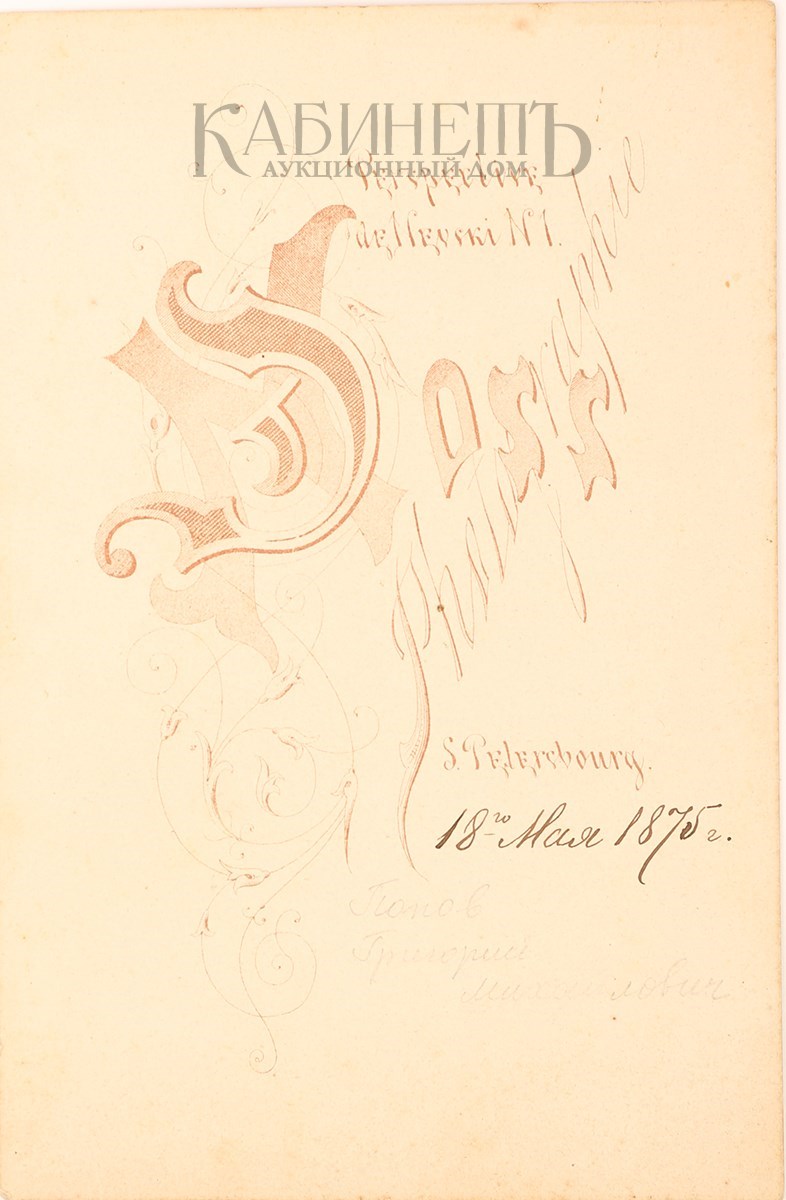 КАБИНЕТЪ
АУКЦИОННЫЙ ДОМ
Perspective
de Nevski N 1.
Doss
Photographie
S. Petersbourg.
18-го Мая 1875 г.
Попов
Григорий
Михайлович